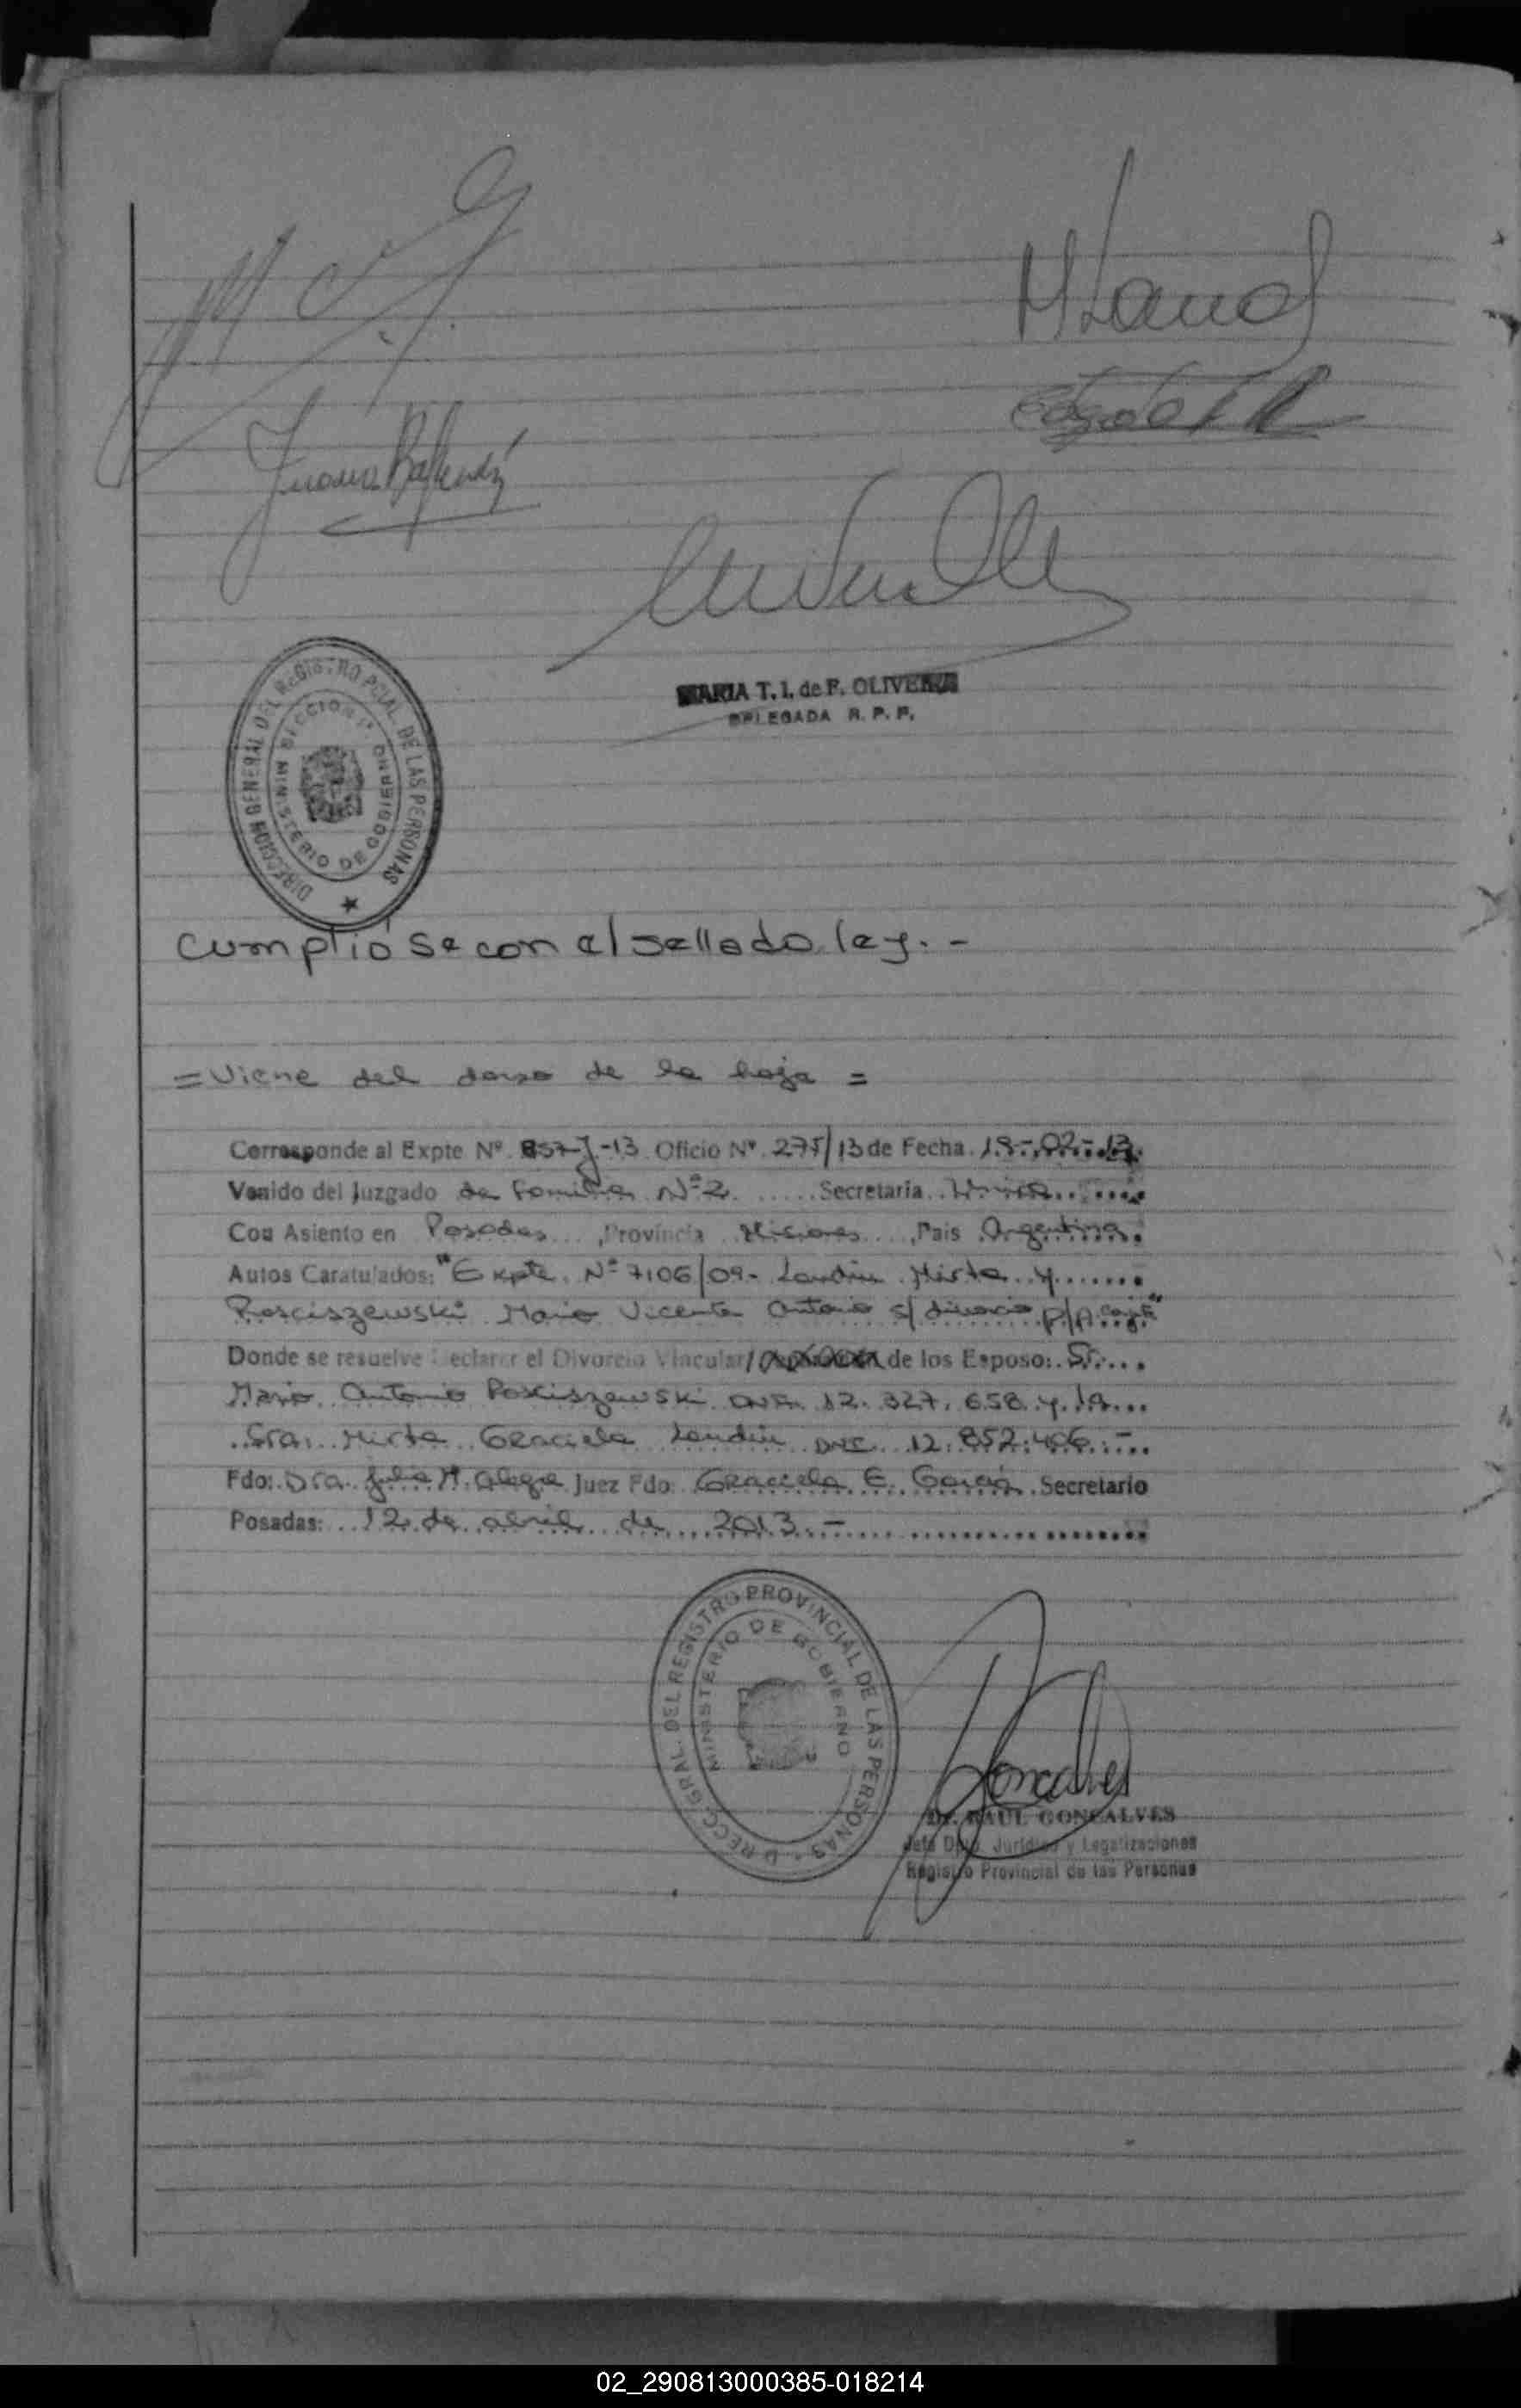 MARIA T. I. de F. OLIVEIRA
DELEGADA R. P. P.
DIRECCION GENERAL DEL REGISTRO PCIAL. DE LAS PERSONAS
MINISTERIO DE GOBIERNO
SECCION 1ª
Cumplió se con el sellado ley. -
= Viene del dorso de la hoja =
Corresponde al Expte Nº 857-J-13 Oficio Nº 275/13 de Fecha 18-02-13.
Venido del Juzgado de Familia Nº 2 Secretaria Unica
Con Asiento en Posadas, Provincia Misiones, Pais Argentina.
Autos Caratulados: "Expte. Nº 7106/09- Landin Mirta y
Rosciszewski Mario Vicente Antonio s/ divorcio p/P. Conj."
Donde se resuelve Declarar el Divorcio Vincular/ de los Esposo: Sr.
Mario Antonio Rosciszewski DNI. 12.327.658 y la
Sra. Mirta Graciela Landin DNI. 12.852.406.-
Fdo: Dra. Julia M. Alegre Juez Fdo: Graciela E. García Secretario
Posadas: 12 de abril de 2013.-
DIRECC. GRAL. DEL REGISTRO PROVINCIAL DE LAS PERSONAS
MINISTERIO DE GOBIERNO
Dr. RAUL GONCALVES
Jefe Dpto. Jurídico y Legalizaciones
Registro Provincial de las Personas
02_290813000385-018214